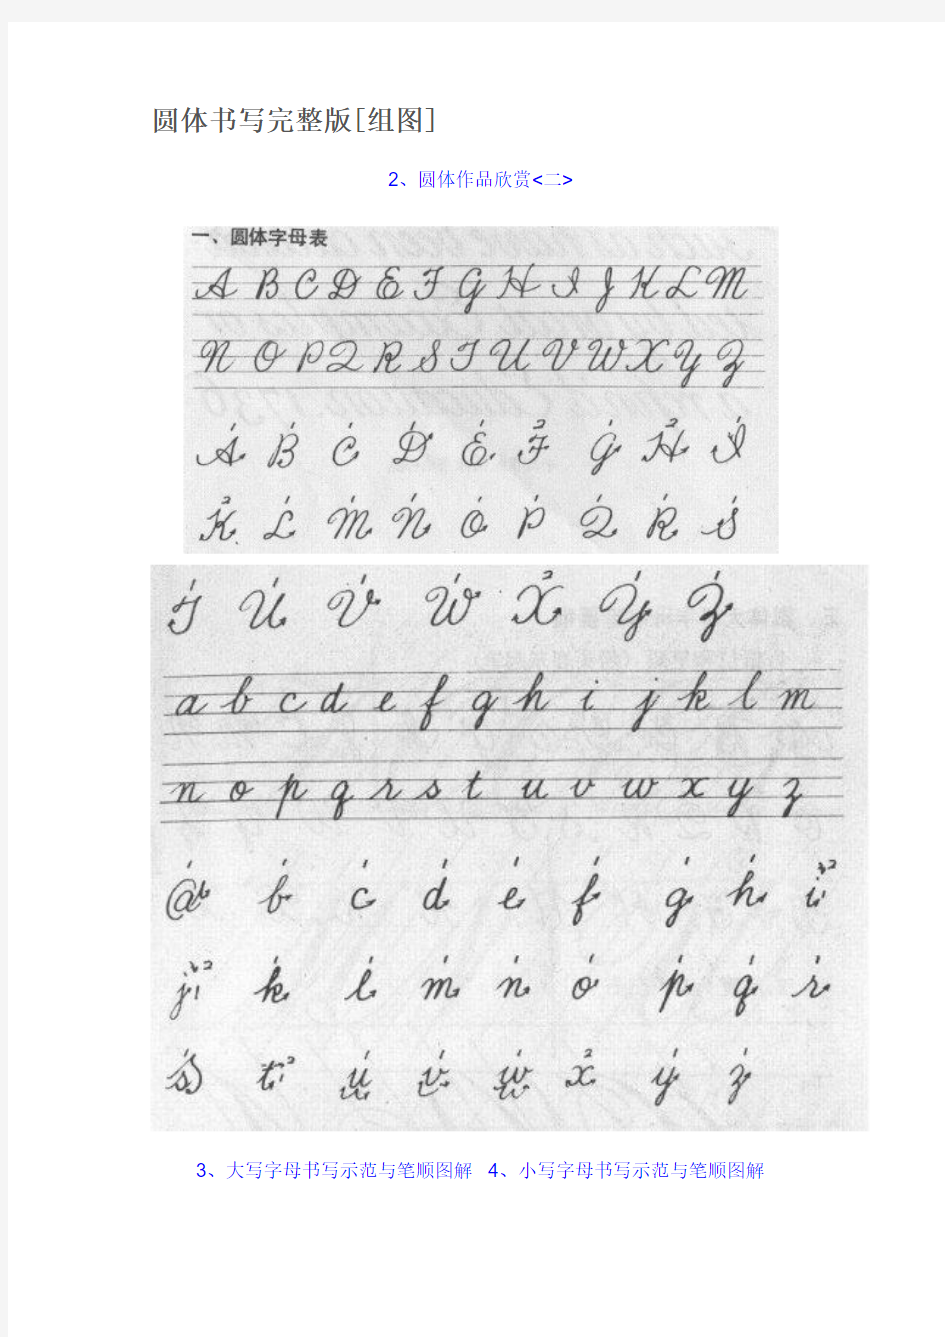 圆体书写完整版[组图]
2、圆体作品欣赏<二>
一、圆体字母表
A B C D E F G H I J K L M
N O P Q R S T U V W X Y Z
A B C D E F G H I
K L M N O P Q R S
T U V W X Y Z
a b c d e f g h i j k l m
n o p q r s t u v w x y z
a b c d e f g h i
j k l m n o p q r
s t u v w x y z
3、大写字母书写示范与笔顺图解 4、小写字母书写示范与笔顺图解